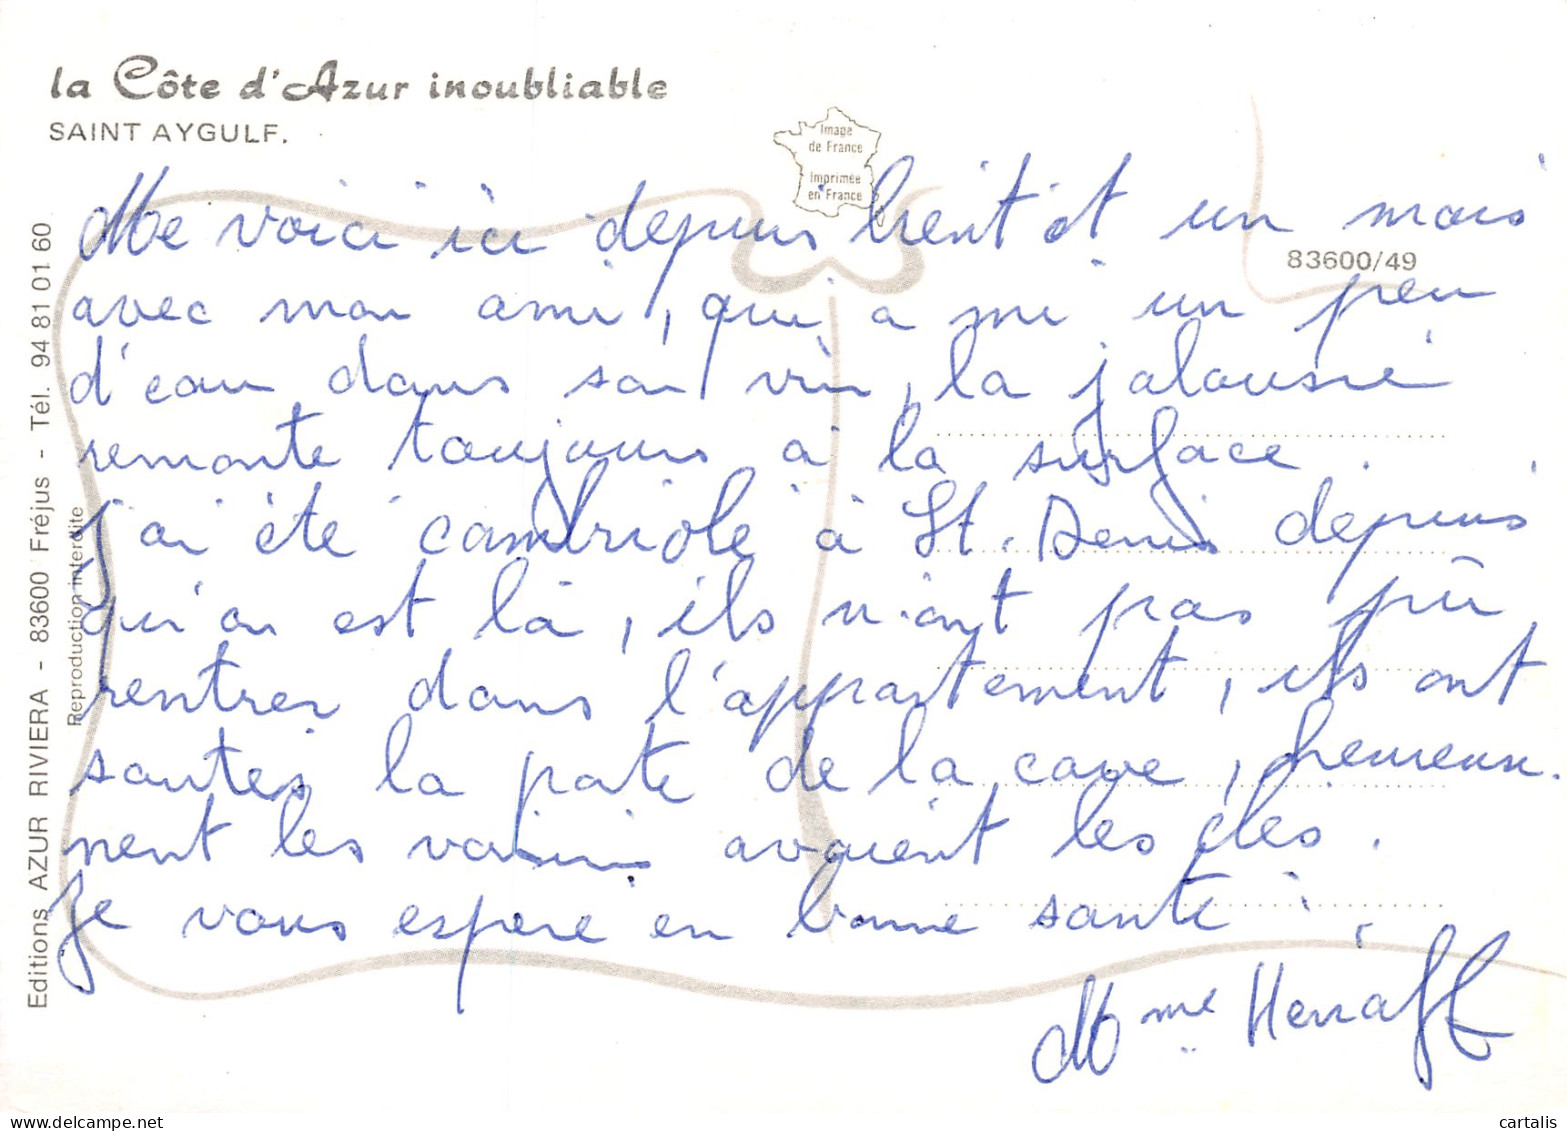 la Côte d'Azur inoubliable
SAINT AYGULF.
Image
de France
Imprimée
en France
83600/49
Editions AZUR RIVIERA - 83600 Fréjus - Tél. 94 81 01 60
Reproduction interdite
Me voici ici depuis bientôt un mois
avec mon ami, qui a mi un peu
d'eau dans son vin, la jalousie
remonte toujours à la surface.
j'ai été cambriolé à St. Denis depuis
qu'on est là, ils n'ont pas pû
rentrer dans l'appartement, ils ont
sautés la porte de la cave, heureuse-
ment les voisins avaient les clés.
Je vous espère en bonne santé.
Mme Henaff
cartalis